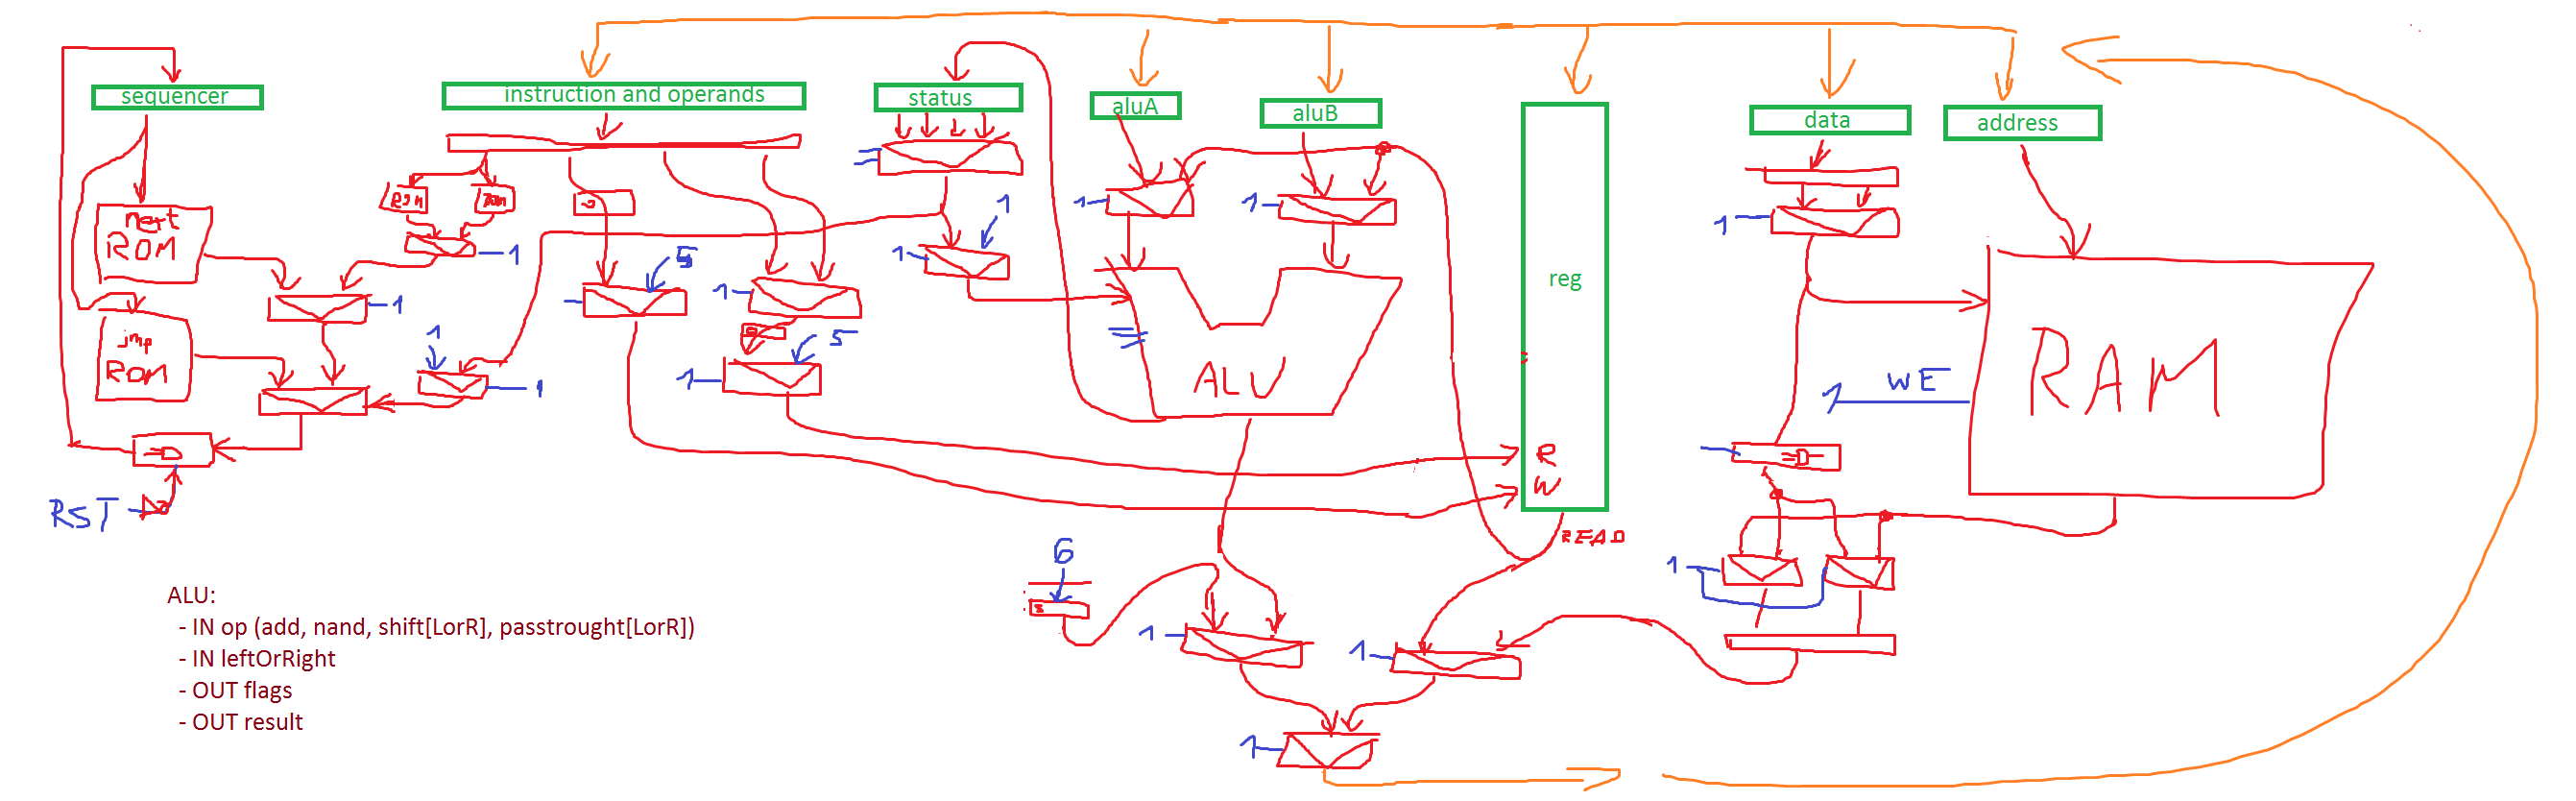 sequencer
instruction and operands
status
aluA
aluB
reg
data
address
next
ROM
jmp
ROM
RST
1
1
1
1
5
1
1
5
1
1
1
1
1
ALU
R
W
READ
1
RAM
1
WE
1
6
1
1
1
ALU:
- IN op (add, nand, shift[LorR], passtrought[LorR])
- IN leftOrRight
- OUT flags
- OUT result